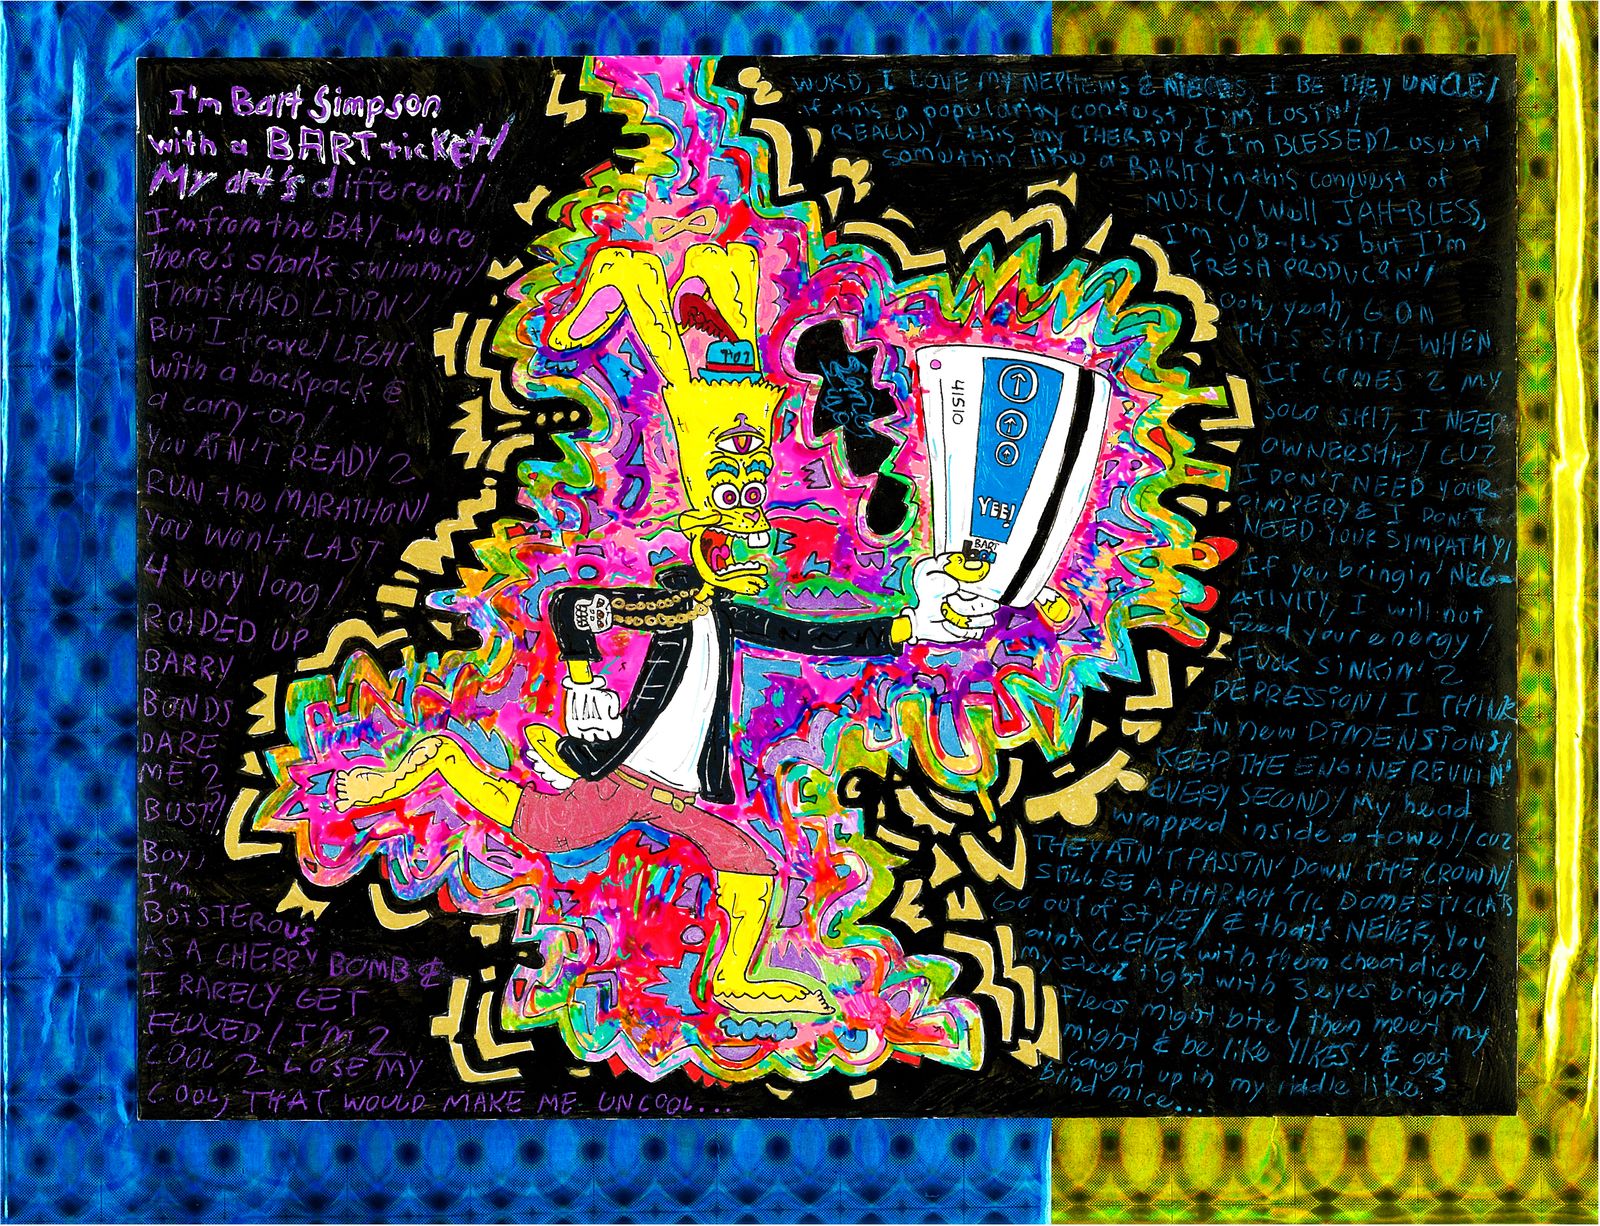 I'm Bart Simpson
with a BART ticket/
My art's different/
I'm from the BAY where
there's sharks swimmin'/
That's HARD LIVIN'/
But I travel LIGHT
with a backpack &
a carry on/
YOU AIN'T READY 2
RUN the MARATHON/
YOU WON't LAST
4 very long/
ROIDED UP
BARRY
BONDS
DARE
ME 2
BUST?!/
Boy,
I'm
BOISTEROUS
AS A CHERRY BOMB &
I RARELY GET
FLUXED/ I'M 2
COOL 2 LOSE MY
COOL, THAT WOULD MAKE ME UNCOOL...
WORD, I LOVE MY NEPHEWS & NIECES, I BE THEY UNCLE/
If this a popularity contest, I'M LOSIN'/
REALLY, this my THERAPY & I'M BLESSED 2 USIN'
somethin' like a BARRY in this conquest of
MUSIC/ Well JAH-BLESS,
I'm job-less but I'm
FRESH PRODUCIN'/
Ooh, yeah, G ON
THIS SHIT/ WHEN
IT COMES 2 MY
SOLO SHIT, I NEED
OWNERSHIP/ CUZ
I DON'T NEED YOUR
PIMPERY & I DON'T
NEED YOUR SYMPATHY/
If you bringin' NEG-
ATIVITY, I will not
feed your energy/
Fuck SINKIN' 2
DEPRESSION/ I THINK
IN new DIMENSIONS/
KEEP THE ENGINE REVVIN'
EVERY SECOND/ My head
wrapped inside a towel/ cuz
THEY AIN'T PASSIN' DOWN THE CROWN/
STILL BE A PHARAOH 'TIL DOMESTIC CATS
GO OUT OF STYLE/ & that's NEVER, you
ain't CLEVER with them cheat dice/
my steez tight with 3 eyes bright/
Fleas might bite/ then meet my
might & be like YIKES! & get
caught up in my riddle like 3
blind mice...
41510
YEE!
BART